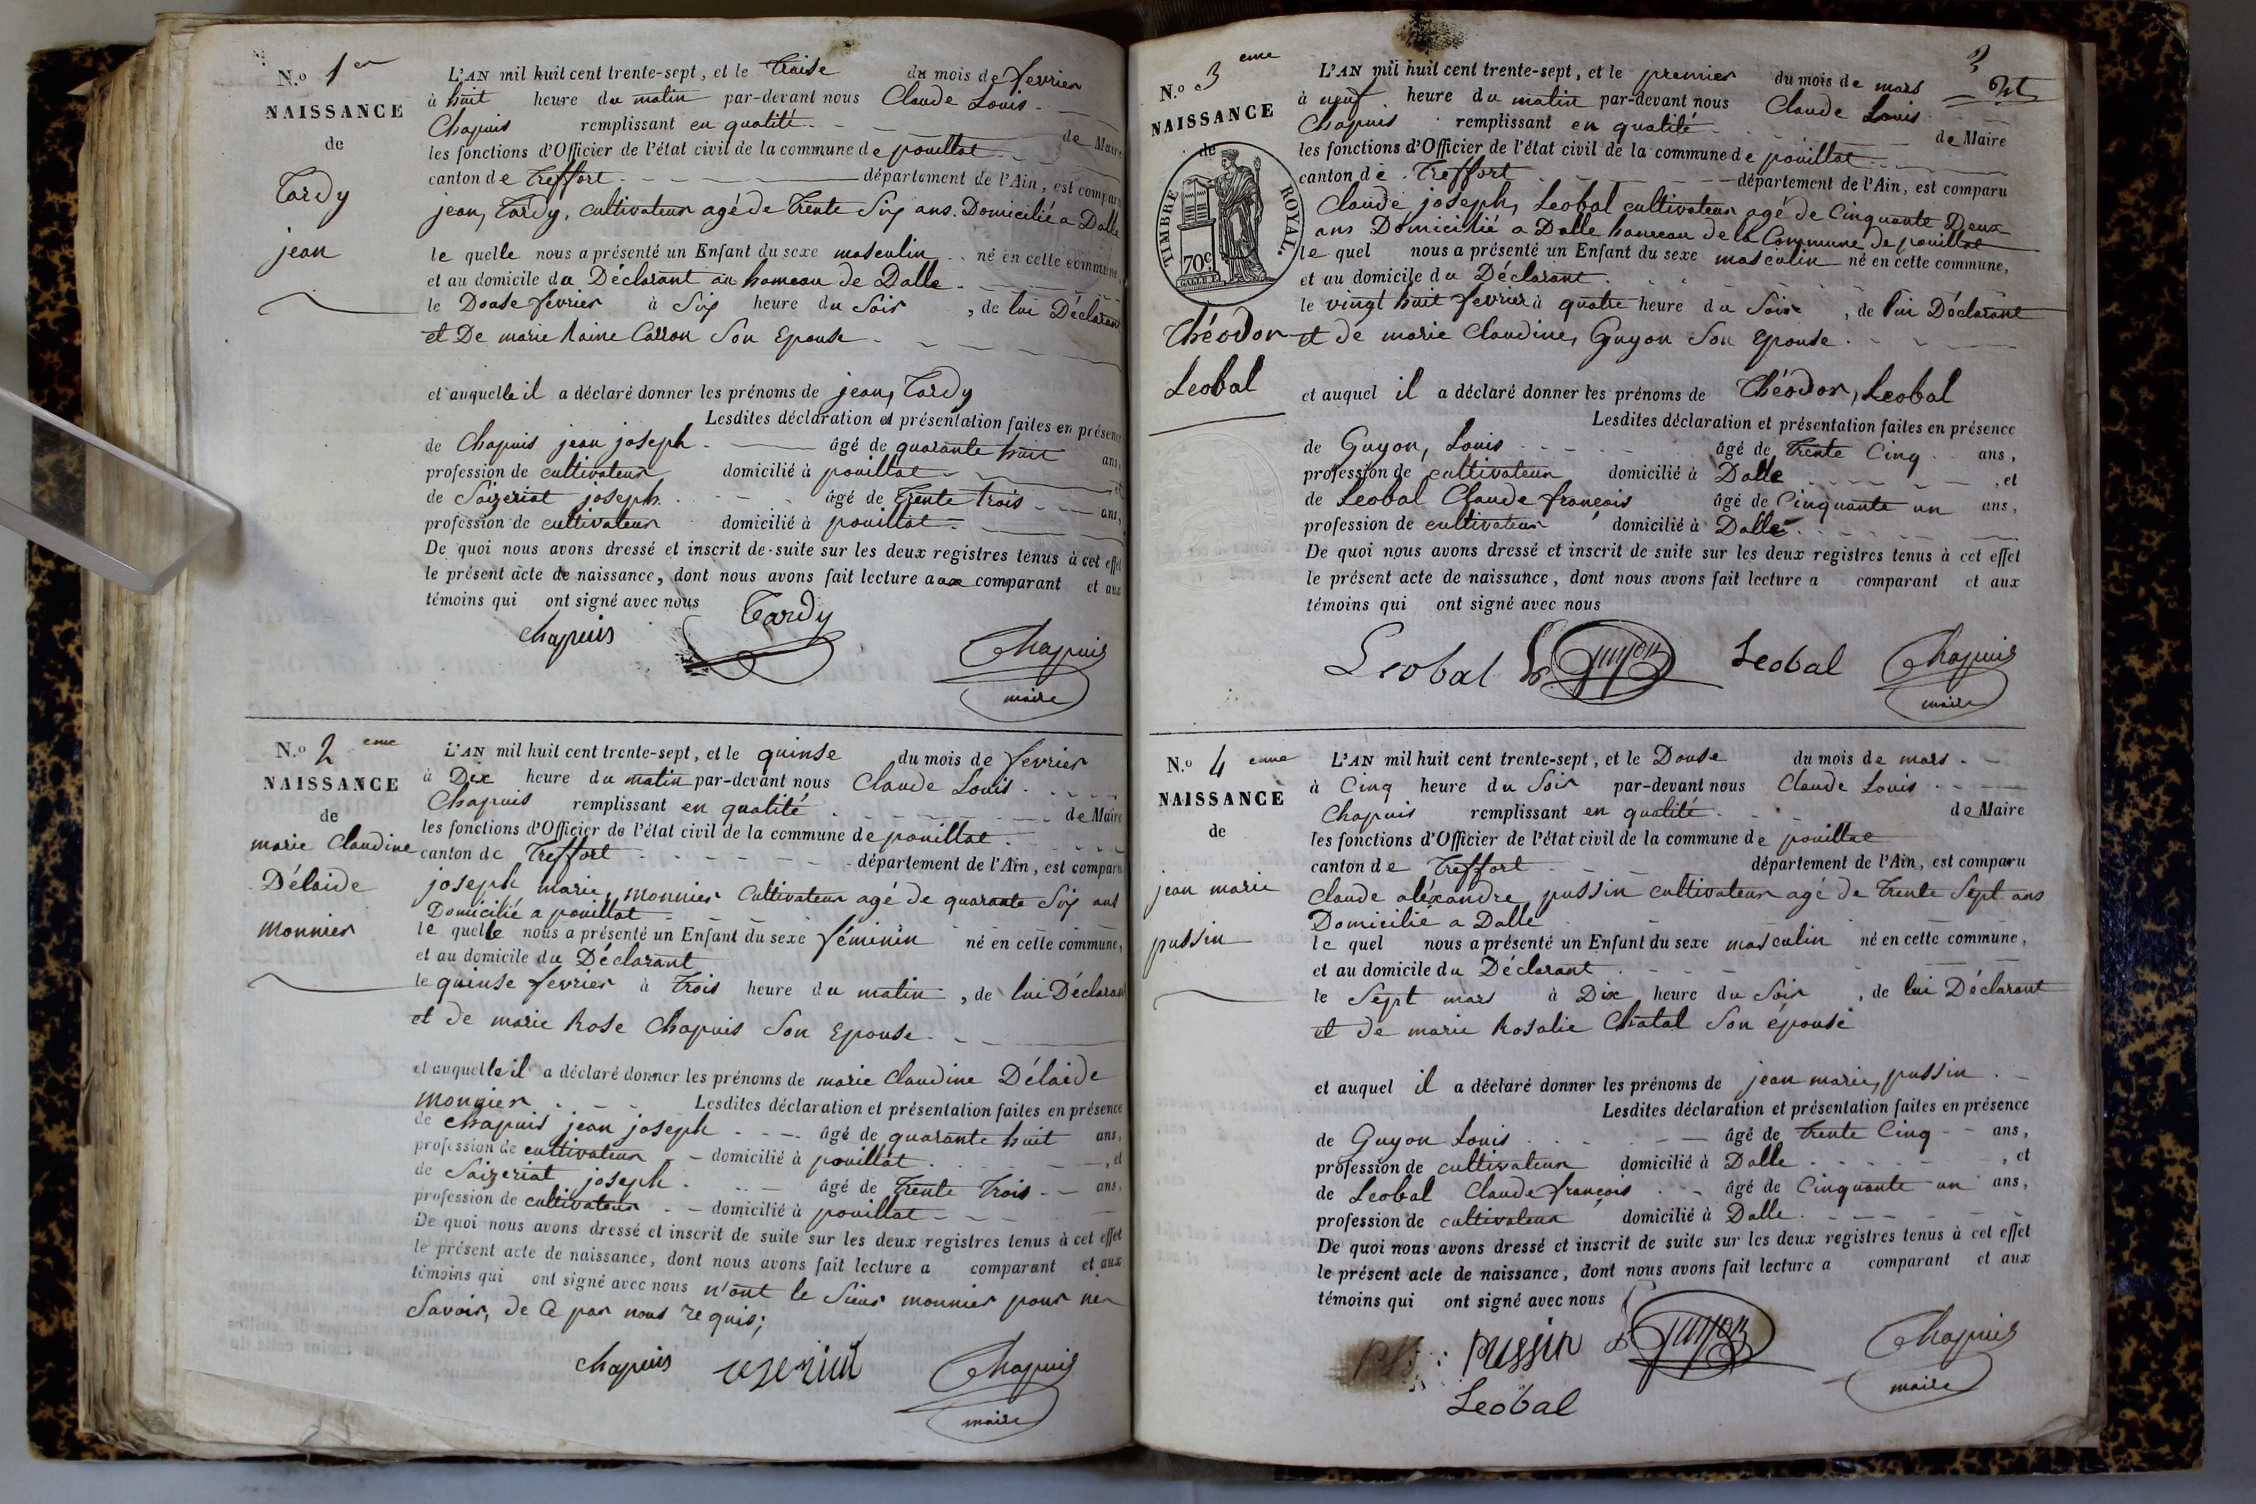 N.o 1er
NAISSANCE
de
Tardy
jean
L'AN mil huit cent trente-sept, et le Traise du mois de fevrier
à huit heure du matin par-devant nous Claude Louis
Chapuis remplissant en qualité de Maire
les fonctions d'Officier de l'état civil de la commune de pouillat
canton de Treffort département de l'Ain, est comparu
jean, Tardy, cultivateur agé de Trente Six ans. Domicilié a Dalle
le quelle nous a présenté un Enfant du sexe masculin né en cette commune,
et au domicile du Déclarant au hameau de Dalle
le Douse fevrier à Six heure du Soir, de lui Déclarant
et De marie Raine Carron Son Epouse
et auquelle il a déclaré donner les prénoms de jean, Tardy
Lesdites déclaration et présentation faites en présence
de Chapuis jean joseph âgé de quarante huit ans,
profession de cultivateur domicilié à pouillat, et
de Saizeriat joseph âgé de Trente trois ans,
profession de cultivateur domicilié à pouillat
De quoi nous avons dressé et inscrit de suite sur les deux registres tenus à cet effet
le présent acte de naissance, dont nous avons fait lecture aux comparant et aux
témoins qui ont signé avec nous
chapuis Tardy Chapuis
maire
N.o 2eme
NAISSANCE
de
marie Claudine
Délaide
monnier
L'AN mil huit cent trente-sept, et le quinse du mois de fevrier
à Dix heure du matin par-devant nous Claude Louis
Chapuis remplissant en qualité de Maire
les fonctions d'Officier de l'état civil de la commune de pouillat
canton de Treffort département de l'Ain, est comparu
joseph marie, monnier Cultivateur agé de quarante Six ans
Domicilié a pouillat
le quelle nous a présenté un Enfant du sexe féminin né en cette commune,
et au domicile du Déclarant
le quinse fevrier à Trois heure du matin, de lui Déclarant
et de marie Rose Chapuis Son Epouse
et auquelle il a déclaré donner les prénoms de marie Claudine Délaide
monnier Lesdites déclaration et présentation faites en présence
de chapuis jean joseph âgé de quarante huit ans,
profession de cultivateur domicilié à pouillat, et
de Saizeriat joseph âgé de Trente Trois ans,
profession de cultivateur domicilié à pouillat
De quoi nous avons dressé et inscrit de suite sur les deux registres tenus à cet effet
le présent acte de naissance, dont nous avons fait lecture a comparant et aux
témoins qui ont signé avec nous n'ont le Sieur monnier pour ne
Savoir, de Ce par nous requis;
chapuis Chapuis
maire
3
N.o 3eme
NAISSANCE
de
TIMBRE ROYAL.
70c
Théodor
Leobal
L'AN mil huit cent trente-sept, et le premier du mois de mars
à neuf heure du matin par-devant nous Claude Louis
Chapuis remplissant en qualité de Maire
les fonctions d'Officier de l'état civil de la commune de pouillat
canton de Treffort département de l'Ain, est comparu
Claude joseph, Leobal cultivateur agé de Cinquante Deux
ans Domicilié a Dalle hameau de la Commune de pouillat
le quel nous a présenté un Enfant du sexe masculin né en cette commune,
et au domicile du Déclarant
le vingt huit fevrier à quatre heure du Soir, de lui Déclarant
et de marie Claudine, Guyon Son Epouse
et auquel il a déclaré donner les prénoms de Théodor, Leobal
Lesdites déclaration et présentation faites en présence
de Guyon, Louis âgé de Trente Cinq ans,
profession de cultivateur domicilié à Dalle, et
de Leobal Claude françois âgé de Cinquante un ans,
profession de cultivateur domicilié à Dalle
De quoi nous avons dressé et inscrit de suite sur les deux registres tenus à cet effet
le présent acte de naissance, dont nous avons fait lecture a comparant et aux
témoins qui ont signé avec nous
Leobal Ls Guyon Leobal Chapuis
maire
N.o 4eme
NAISSANCE
de
jean marie
pussin
L'AN mil huit cent trente-sept, et le Douse du mois de mars
à Cinq heure du Soir par-devant nous Claude Louis
Chapuis remplissant en qualité de Maire
les fonctions d'Officier de l'état civil de la commune de pouillat
canton de Treffort département de l'Ain, est comparu
Claude aléxandre pussin cultivateur agé de Trente Sept ans
Domicilié a Dalle
le quel nous a présenté un Enfant du sexe masculin né en cette commune,
et au domicile du Déclarant
le Sept mars à Dix heure du Soir, de lui Déclarant
et de marie Rosalie Chatal Son épouse
et auquel il a déclaré donner les prénoms de jean marie, pussin
Lesdites déclaration et présentation faites en présence
de Guyon Louis âgé de Trente Cinq ans,
profession de cultivateur domicilié à Dalle, et
de Leobal Claude françois âgé de Cinquante un ans,
profession de cultivateur domicilié à Dalle
De quoi nous avons dressé et inscrit de suite sur les deux registres tenus à cet effet
le présent acte de naissance, dont nous avons fait lecture a comparant et aux
témoins qui ont signé avec nous
pussin Guyon Chapuis
Leobal maire